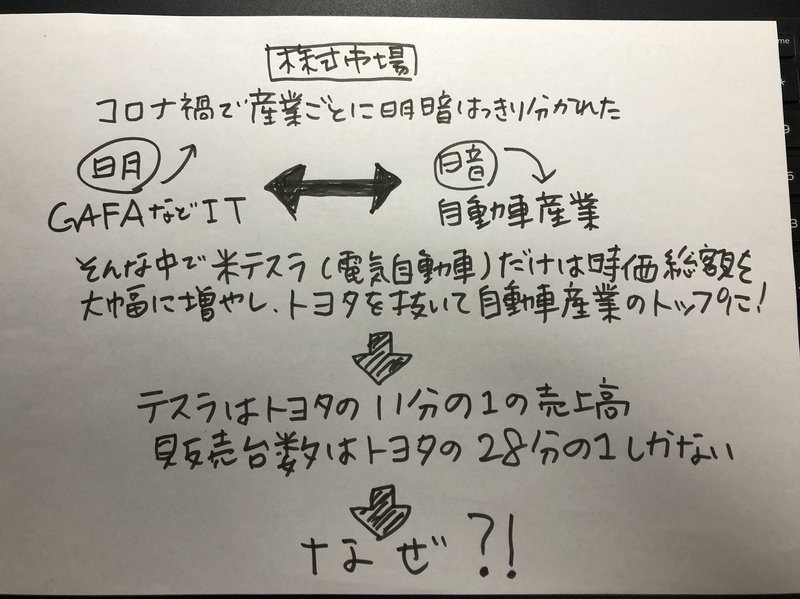 株式市場
コロナ禍で産業ごとに明暗はっきり分かれた
明 暗
GAFAなどIT 自動車産業
そんな中で米テスラ(電気自動車)だけは時価総額を
大幅に増やし、トヨタを抜いて自動車産業のトップに!
テスラはトヨタの11分の1の売上高
販売台数はトヨタの28分の1しかない
なぜ?!